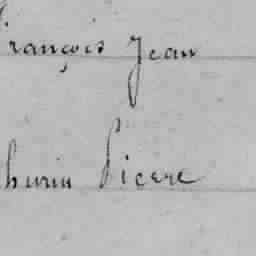 François Jean
thurin Picere